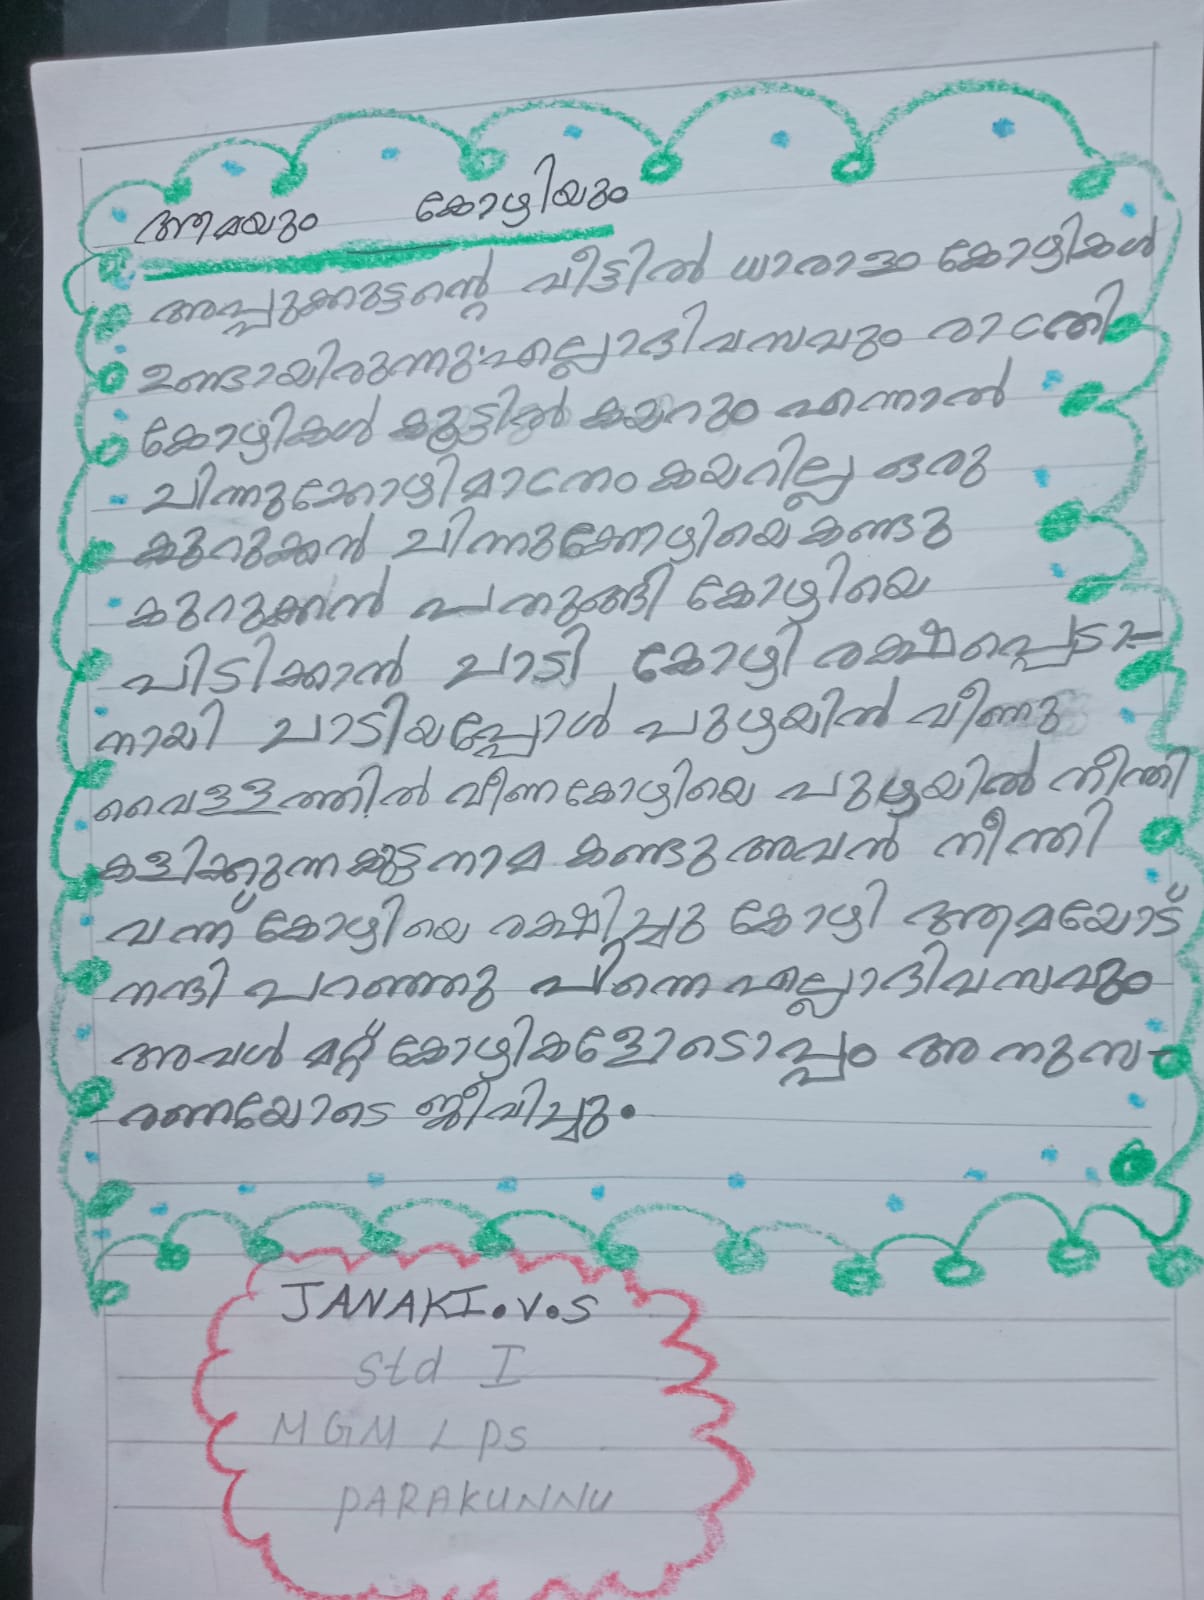 ആമയും കോഴിയും
അപ്പുക്കുട്ടന്റെ വീട്ടിൽ ധാരാളം കോഴികൾ
ഉണ്ടായിരുന്നു.എല്ലാദിവസവും രാത്രി
കോഴികൾ കൂട്ടിൽ കയറും എന്നാൽ
ചിന്നുക്കോഴിമാത്രം കയറില്ല ഒരു
കുറുക്കൻ ചിന്നുക്കോഴിയെകണ്ടു
കുറുക്കൻ പതുങ്ങി കോഴിയെ
പിടിക്കാൻ ചാടി കോഴി രക്ഷപ്പെടാ-
നായി ചാടിയപ്പോൾ പുഴയിൽ വീണു
വെള്ളത്തിൽ വീണകോഴിയെ പുഴയിൽ നീന്തി
കളിക്കുന്നകുട്ടനാമ കണ്ടു അവൻ നീന്തി
വന്ന് കോഴിയെ രക്ഷിച്ചു കോഴി ആമയോട്
നന്ദി പറഞ്ഞു പിന്നെ എല്ലാദിവസവും
അവൾ മറ്റ് കോഴികളോടൊപ്പം അനുസ-
രണയോടെ ജീവിച്ചു.
JANAKI.V.S
Std I
MGM LPS
PARAKUNNU